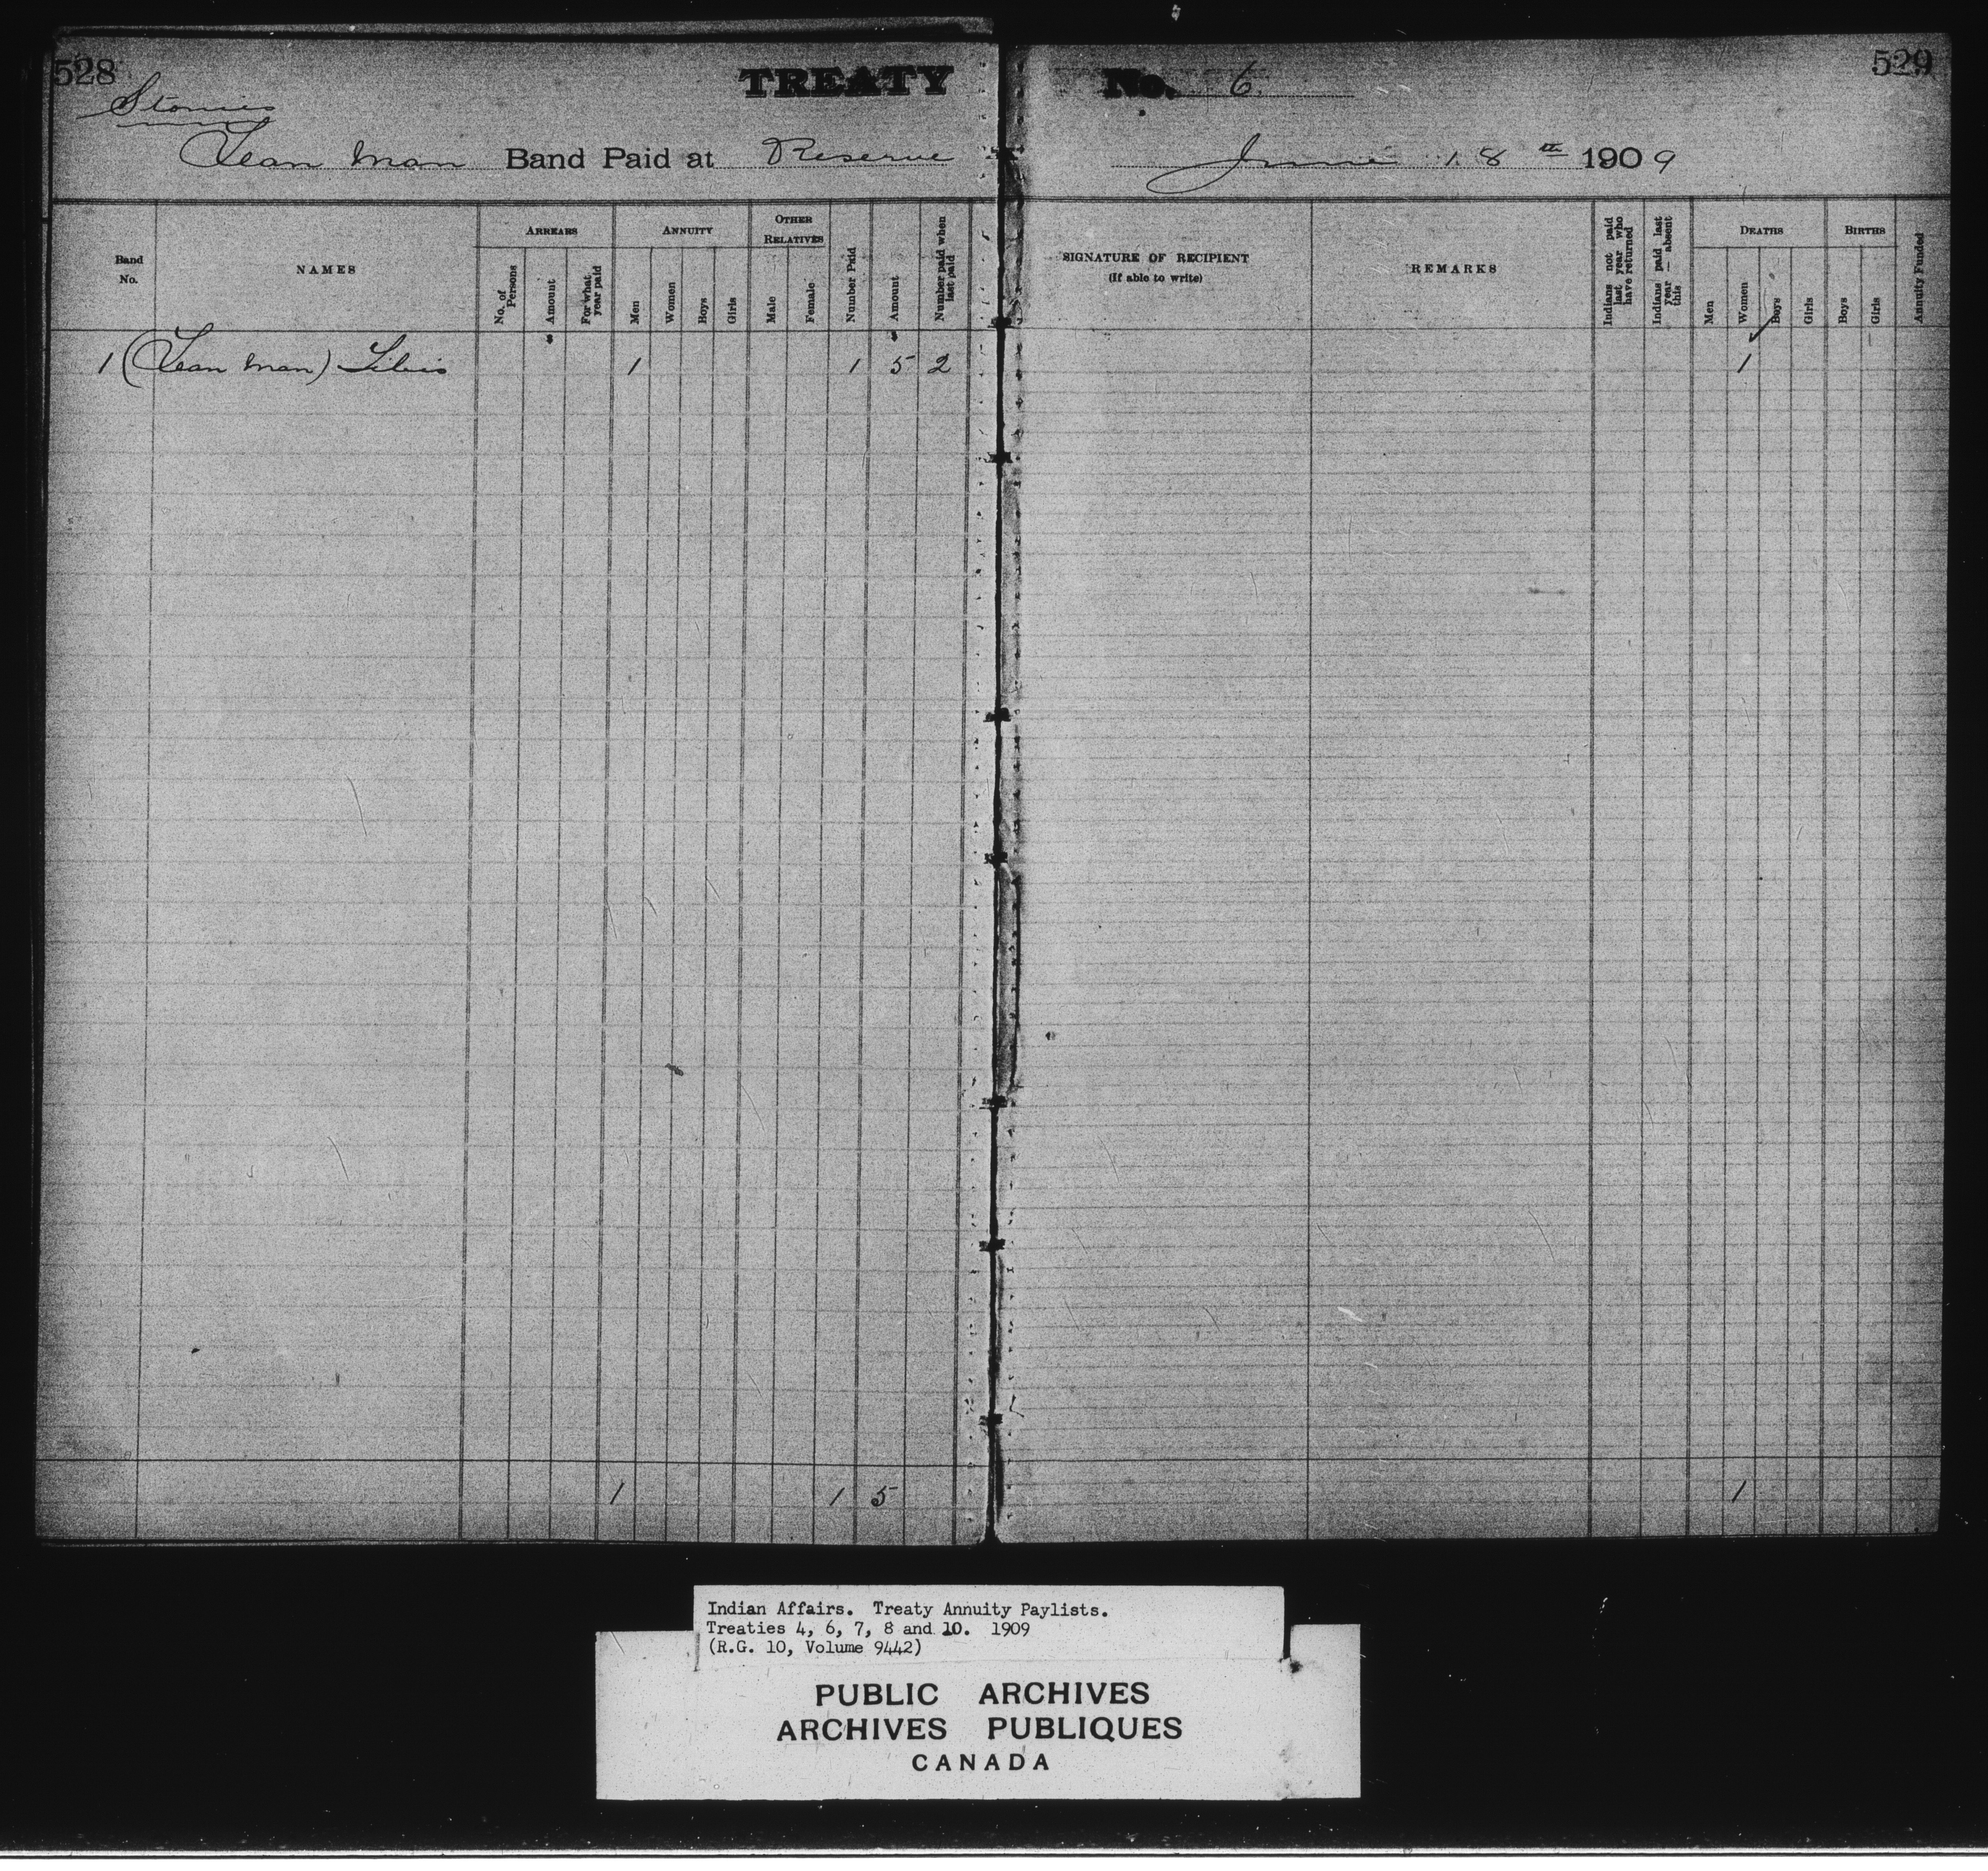 528
TREATY
No. 6
529
Stonies
Lean Man Band Paid at Reserve
June 18th 1909
Band No.
NAMES
ARREARS
No. of Persons
Amount
For what year paid
ANNUITY
Men
Women
Boys
Girls
OTHER RELATIVES
Male
Female
Number Paid
Amount
Number paid when last paid
SIGNATURE OF RECIPIENT
(If able to write)
REMARKS
Indians not paid last year who have returned
Indians paid last year — absent this
DEATHS
Men
Women
Boys
Girls
BIRTHS
Boys
Girls
Annuity Funded
$ $
1 (Lean Man) 1 1 5 2 1
1 1 5 1
Indian Affairs. Treaty Annuity Paylists.
Treaties 4, 6, 7, 8 and 10. 1909
(R.G. 10, Volume 9442)
PUBLIC ARCHIVES
ARCHIVES PUBLIQUES
CANADA